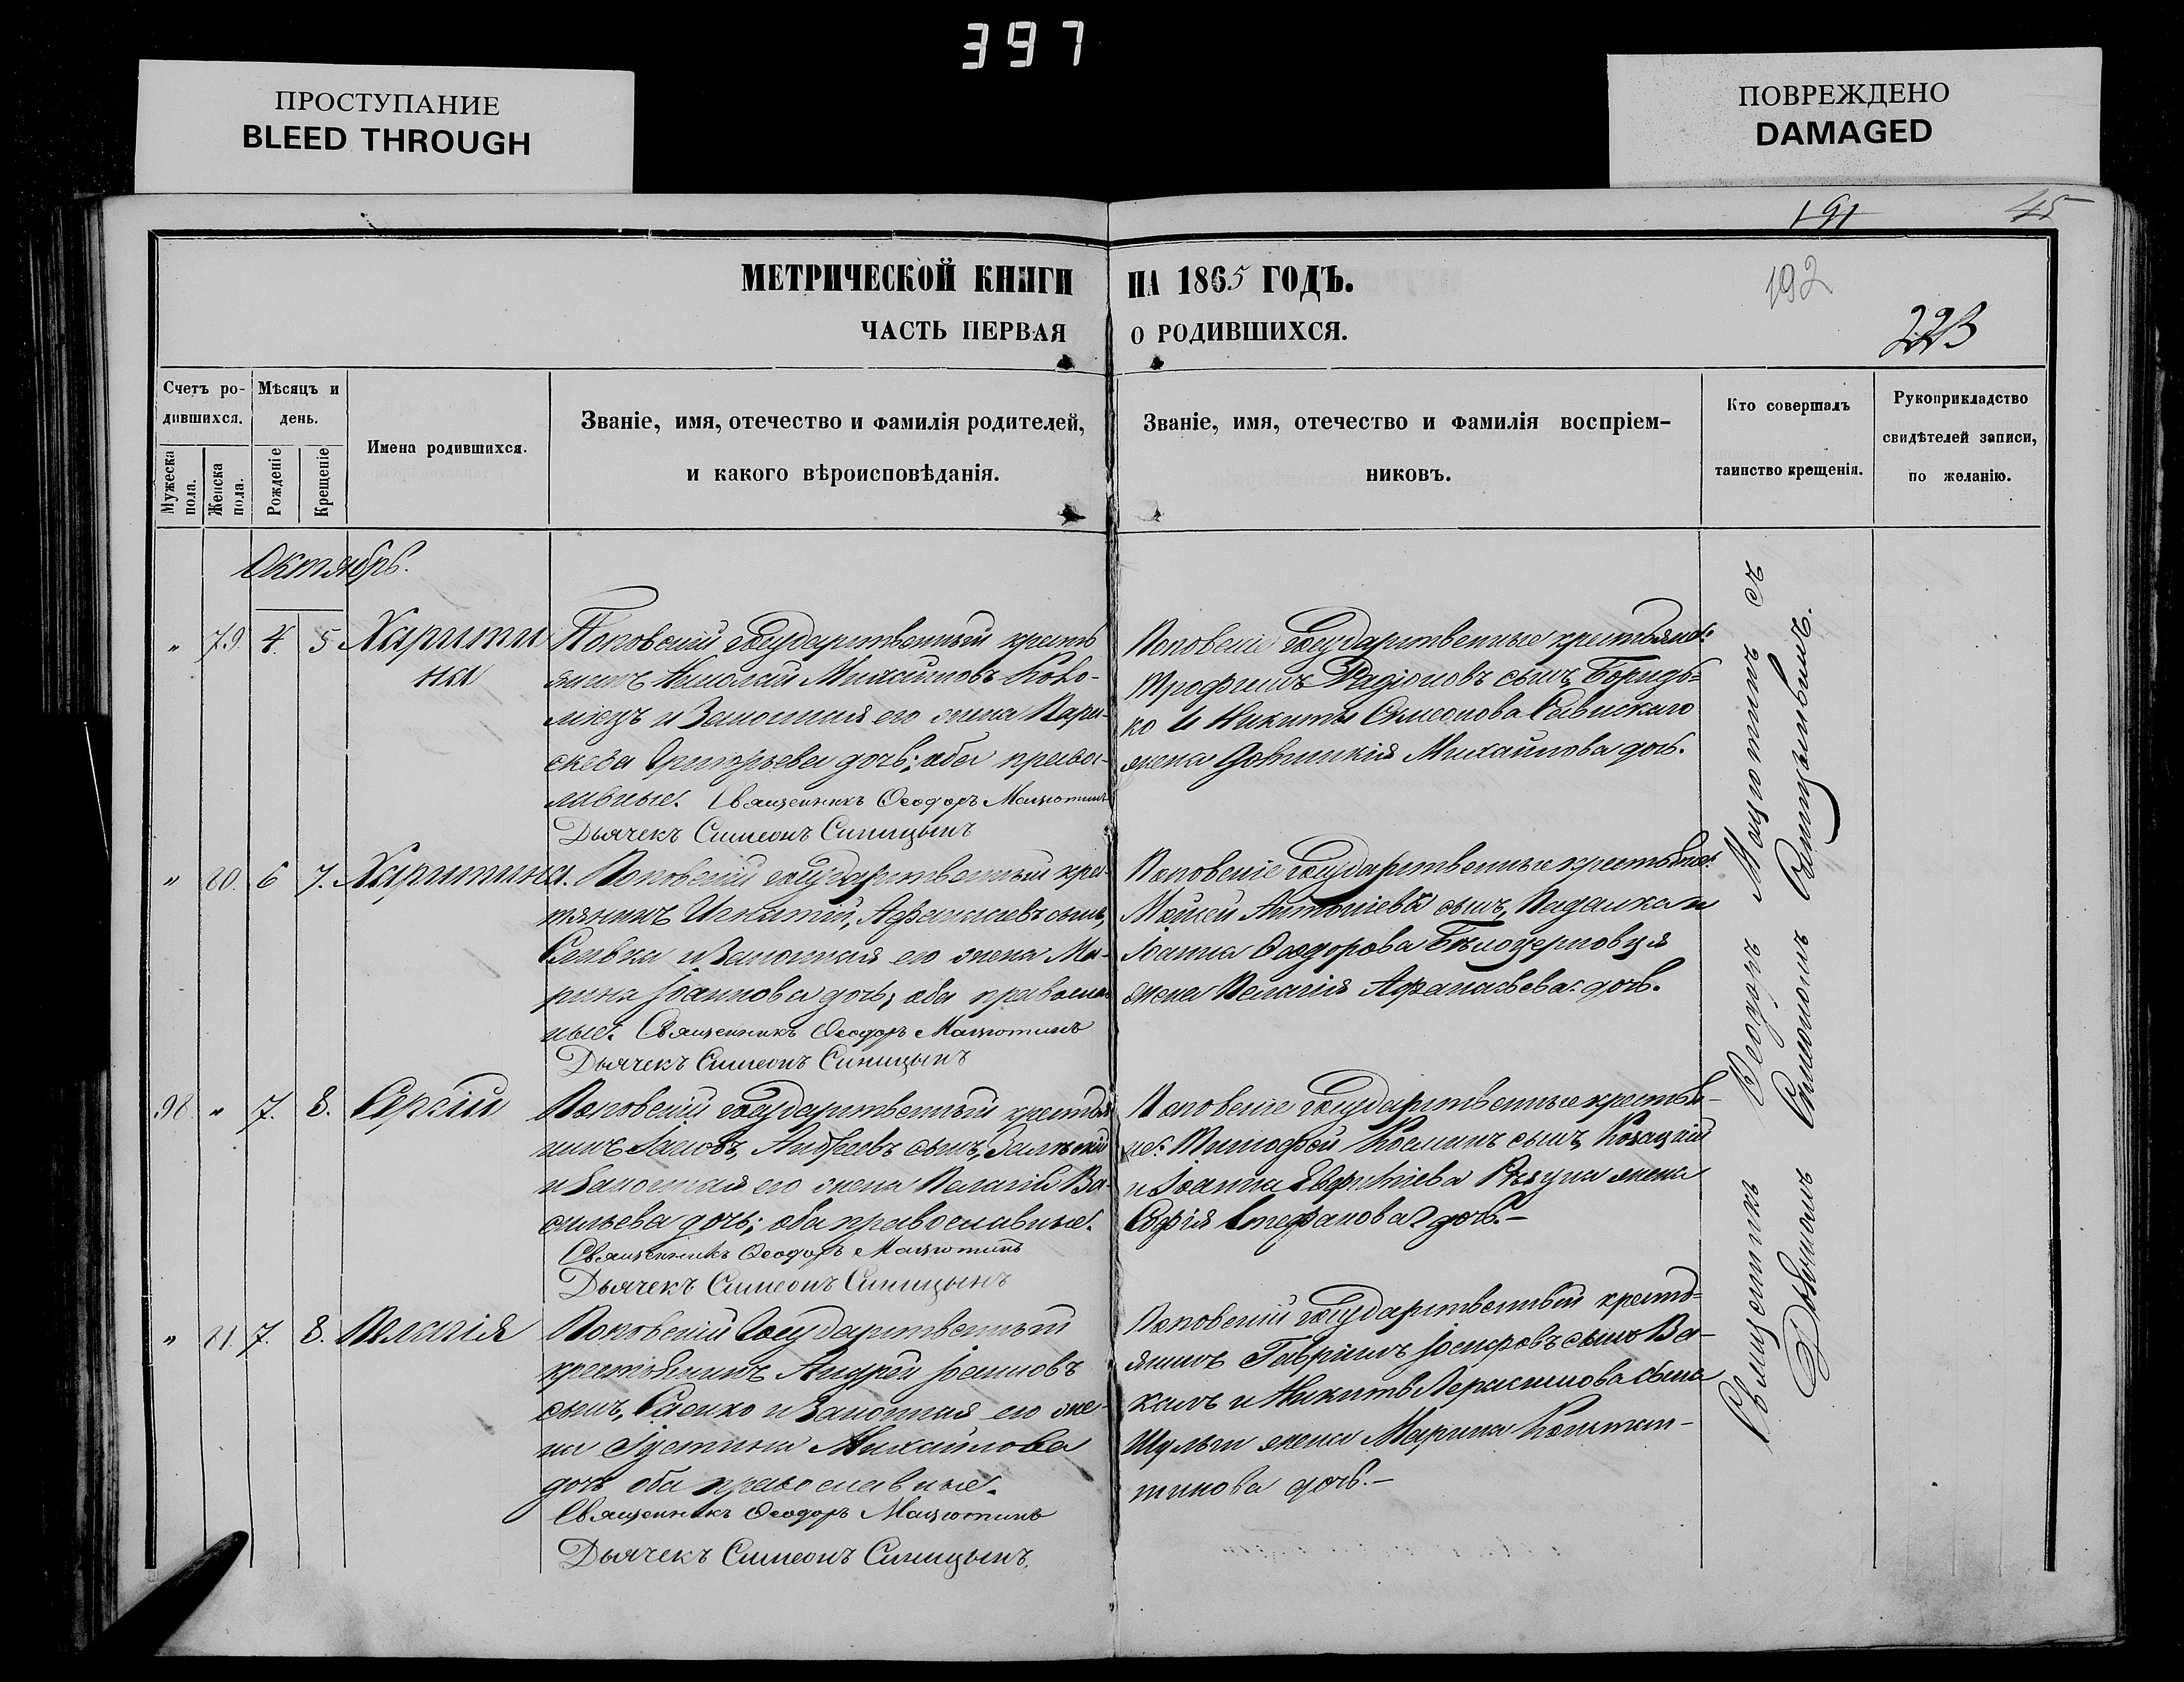 397
ПРОСТУПАНИЕ
BLEED THROUGH
ПОВРЕЖДЕНО
DAMAGED
191
45
МЕТРИЧЕСКОЙ КНИГИ НА 1865 ГОДЪ.
192
ЧАСТЬ ПЕРВАЯ О РОДИВШИХСЯ.
223
Счетъ ро-
дившихся.
Мужеска
пола.
Женска
пола.
Мѣсяцъ и
день.
Рожденіе
Крещеніе
Имена родившихся.
Званіе, имя, отечество и фамилія родителей,
и какого вѣроисповѣданія.
Званіе, имя, отечество и фамилія воспріем-
никовъ.
Кто совершалъ
таинство крещенія.
Рукоприкладство
свидѣтелей записи,
по желанію.
Октябрь.
" 79. 4. 5 Харити
на
Поповскій государственный кресть
янинъ Николай Михайловъ Коло-
міецъ и Законная его жена Пара-
скева Григорьева дочь; оба право-
лавные. Священникъ Ѳеодоръ
Дьячекъ Симеонъ Синицынъ
Поповскіе государственные крестьяне:
Трофимъ Радіоновъ сынъ
ко и Никиты Симеонова Савискаго
жена Михайлова дочь.
" 80. 6 7. Харитина.
Поповскій государственный крес
тянинъ Игнатій, сынъ,
и Законная его жена Ма-
рина Іоаннова дочь; оба православ
ные. Священникъ Ѳеодоръ
Дьячекъ Симеонъ Синицынъ
Поповскіе государственные крестьяне:
Мойсей Антоніевъ сынъ, Падалка и
Іоанна Ѳеодорова Бѣлоцерковця
жена Пелагія Афанасьева дочь.
98. " 7. 8. Сергій
Поповскій государственный крестья
нинъ Іаковъ, Андреевъ сынъ,
и Законная его жена Пелагія Ва-
сильева дочь; оба православные.
Священникъ Ѳеодоръ
Дьячекъ Симеонъ Синицынъ
Поповскіе государственные крестья-
не: Тимофей сынъ, Козацкій
и Іоанна жена
Софія Стефанова дочь.-
" 81. 7. 8. Пелагія
Поповскій Государственный
крестьянинъ Андрей Іоанновъ
сынъ, Саенко и Законная его же-
на Іустина Михайлова
дочь оба православные.
Священникъ Ѳеодоръ
Дьячекъ Симеонъ Синицынъ.
Поповскій государственный кресть-
янинъ Гавріилъ Іосифовъ сынъ Ва-
калъ и Никиты Герасимова сына
Шульги жена Марина Констан-
тинова дочь.-
Священникъ Ѳеодоръ съ
Дьячкомъ Симеономъ Синицынымъ.